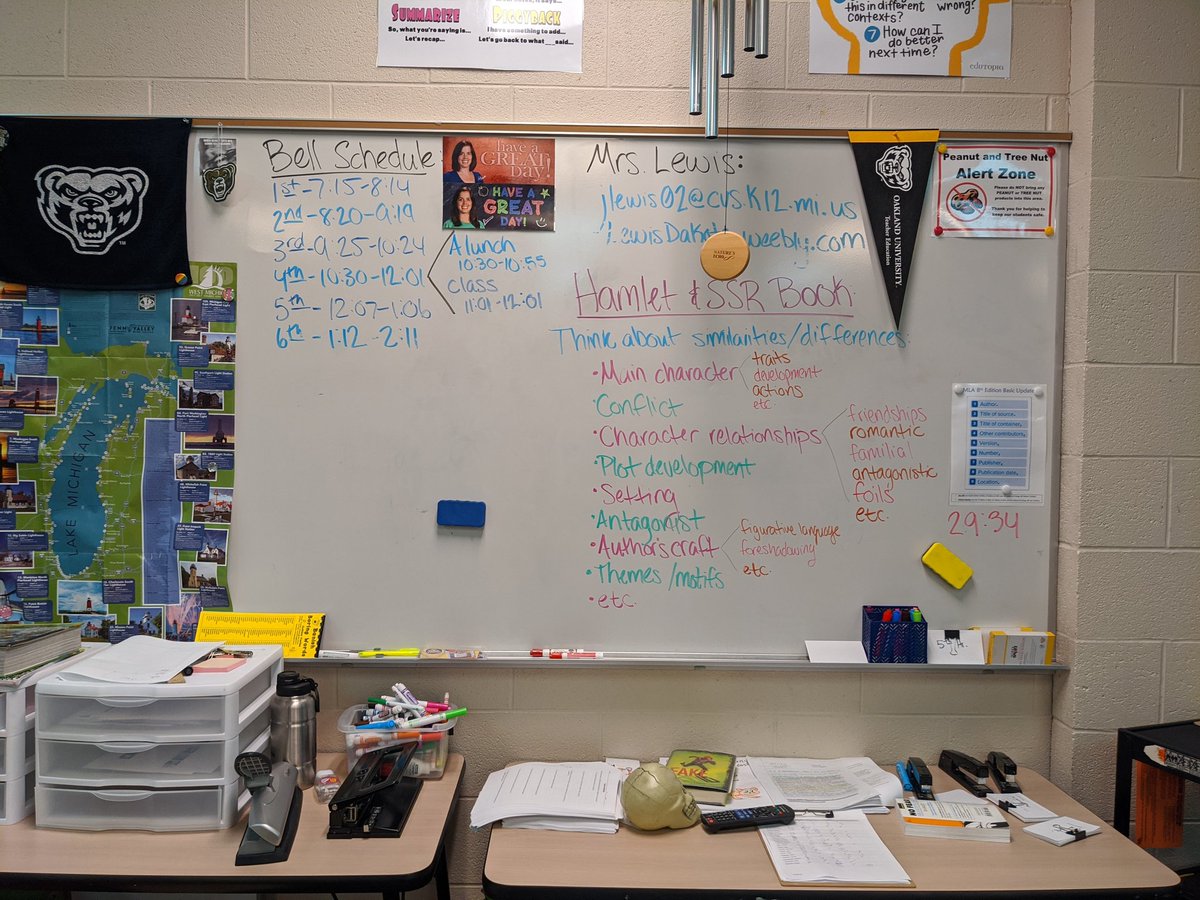 SUMMARIZE
So, what you're saying is...
Let's recap...
PIGGYBACK
I have something to add...
Let's go back to what ___said...
this in different
contexts?
wrong?
7 How can I
do better
next time?
edutopia
Bell Schedule
1st-7:15-8:14
2nd-8:20-9:19
3rd-9:25-10:24
4th-10:30-12:01
5th-12:07-1:06
6th-1:12-2:11
A lunch
10:30-10:55
class
11:01-12:01
have a
GREAT
DAY!
HAVE A
GREAT
DAY!
Mrs. Lewis:
jlewis02@cvs.k12.mi.us
weebly.com
Hamlet & SSR Book
Think about similarities/differences
•Main character
traits
development
actions
etc.
•Conflict
•Character relationships
friendships
romantic
familial
antagonistic
foils
etc.
•Plot development
•Setting
•Antagonist
•Author's craft
figurative language
foreshadowing
etc.
•Themes/motifs
•etc.
OAKLAND UNIVERSITY
Teacher Education
Peanut and Tree Nut
Alert Zone
Please do NOT bring any
PEANUT or TREE NUT
products into this area.
Thank you for helping to
keep our students safe.
MLA 8th Edition Basic Update
1 Author.
2 Title of source.
3 Title of container,
4 Other contributors,
5 Version,
6 Number,
7 Publisher,
8 Publication date,
9 Location.
29:34
WEST MICHIGAN
LAKE MICHIGAN
Banish
Boring Words
5th